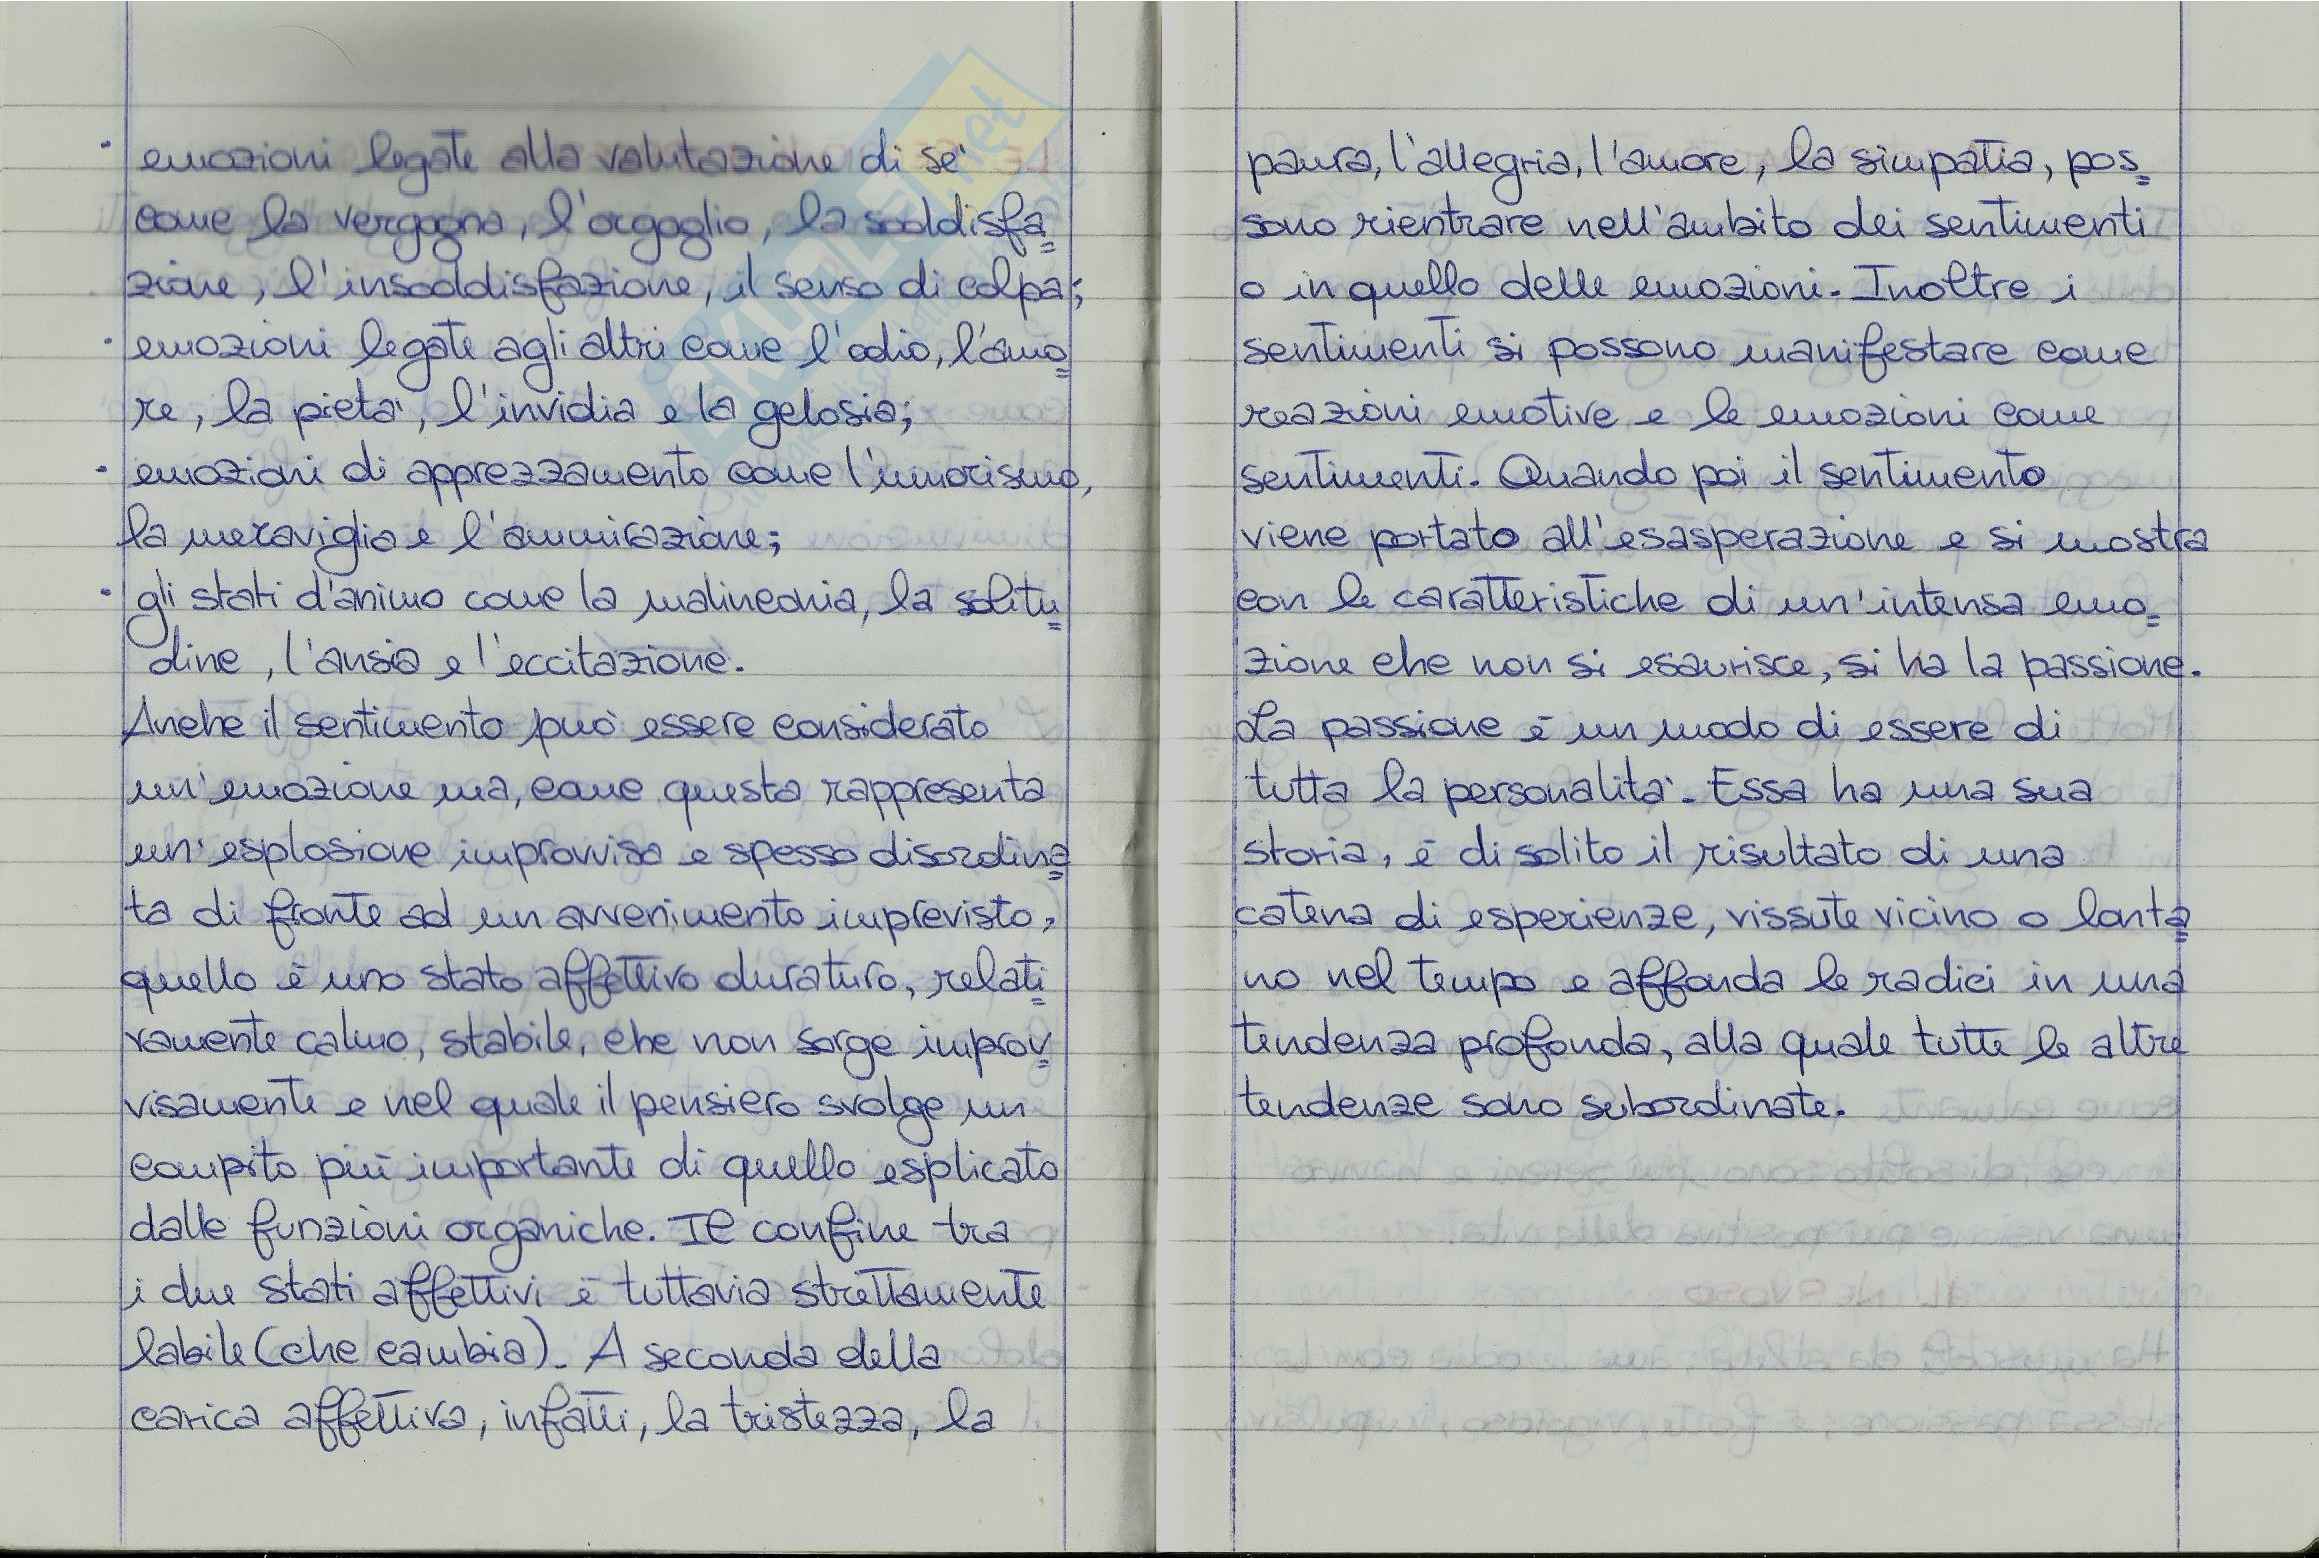 · emozioni legate alla valutazione di se'
come la vergogna, l'orgoglio, la soddisfa=
zione, l'insoddisfazione, il senso di colpa;
· emozioni legate agli altri come l'odio, l'amo=
re, la pieta', l'invidia e la gelosia;
· emozioni di apprezzamento come l'umorismo,
la meraviglia e l'ammirazione;
· gli stati d'animo come la malinconia, la solitu=
dine, l'ansia e l'eccitazione.
Anche il sentimento puo' essere considerato
un'emozione ma, come questa rappresenta
un'esplosione improvvisa e spesso disordina=
ta di fronte ad un avvenimento imprevisto,
quello è uno stato affettivo duraturo, relati=
vamente calmo, stabile, che non sorge improv=
visamente e nel quale il pensiero svolge un
compito più importante di quello esplicato
dalle funzioni organiche. Il confine tra
i due stati affettivi è tuttavia strettamente
labile (che cambia). A seconda della
carica affettiva, infatti, la tristezza, la
paura, l'allegria, l'amore, la simpatia, pos=
sono rientrare nell'ambito dei sentimenti
o in quello delle emozioni. Inoltre i
sentimenti si possono manifestare come
reazioni emotive e le emozioni come
sentimenti. Quando poi il sentimento
viene portato all'esasperazione e si mostra
con le caratteristiche di un'intensa emo=
zione che non si esaurisce, si ha la passione.
La passione è un modo di essere di
tutta la personalita'. Essa ha una sua
storia, è di solito il risultato di una
catena di esperienze, vissute vicino o lonta=
no nel tempo e affonda le radici in una
tendenza profonda, alla quale tutte le altre
tendenze sono subordinate.
SKUOLA.net